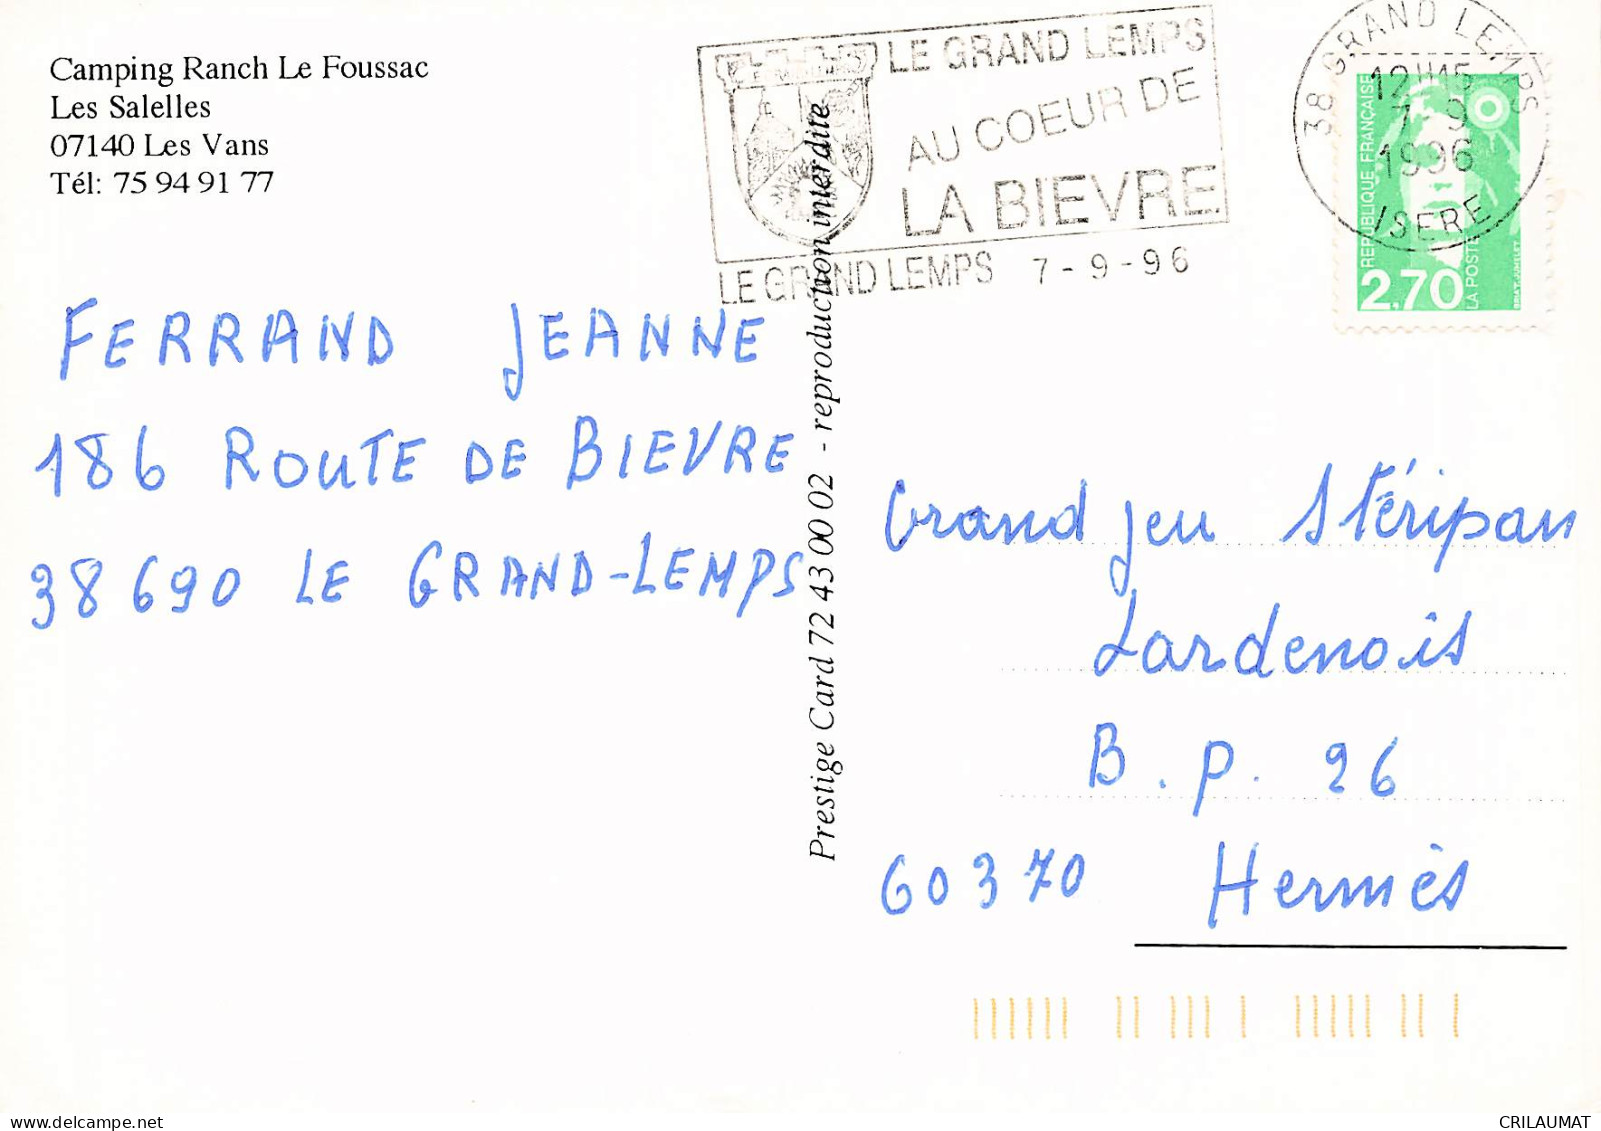 Camping Ranch Le Foussac
Les Salelles
07140 Les Vans
Tél: 75 94 91 77
LE GRAND LEMPS
AU COEUR DE
LA BIEVRE
LE GRAND LEMPS 7 - 9 - 96
38 GRAND LEMPS
12H15
7 - 9
1996
ISERE
REPUBLIQUE FRANÇAISE
2.70
LA POSTE
BRIAT-JUMELET
FERRAND JEANNE
186 ROUTE DE BIEVRE
38690 LE GRAND-LEMPS
Prestige Card 72 43 00 02 - reproduction interdite
Grand jeu Stéripan
Lardenois
B.P. 26
60370 Hermès
CRILAUMAT